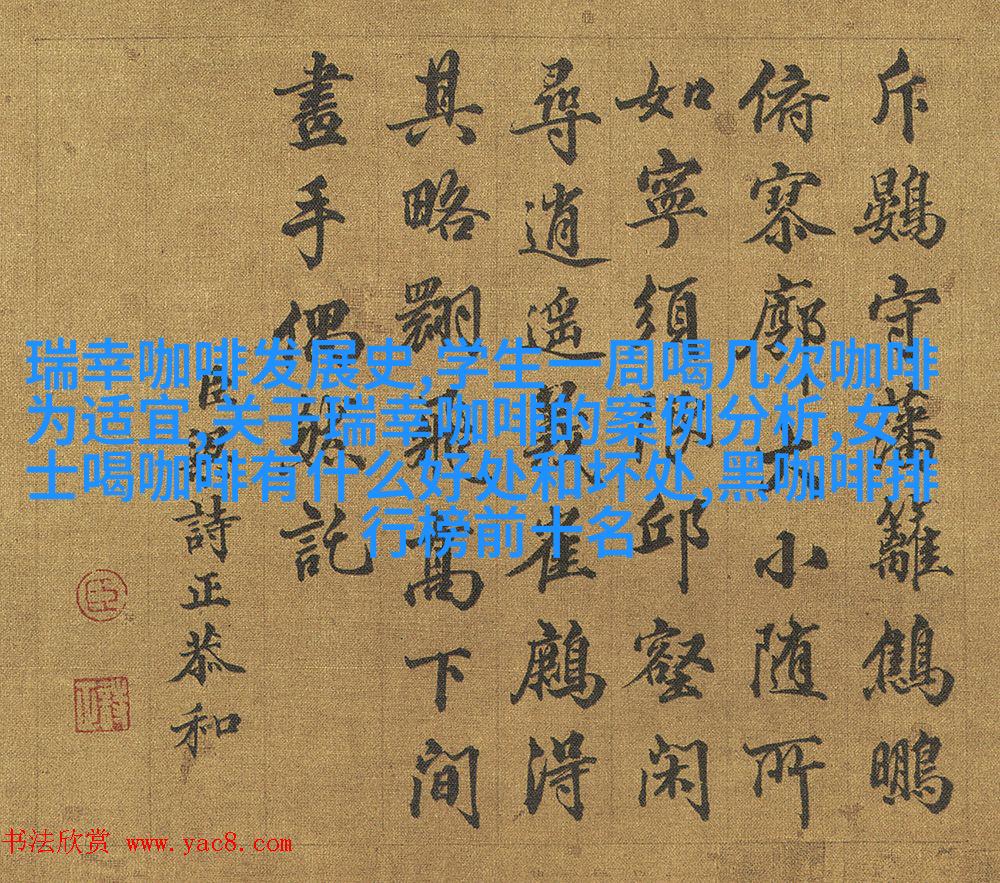 斥鷃守藩籬鷦鵬
俯寥廓大小随所
如寧須邱壑闲
尋逍遥義雀鷹得
其略翾飛高下间
畫手偶然託
臣梁詩正恭和
瑞幸咖啡发展史,学生一周喝几次咖啡
为适宜,关于瑞幸咖啡的案例分析,女
士喝咖啡有什么好处和坏处,黑咖啡排
行榜前十名
臣
书法欣赏 www.yac8.com